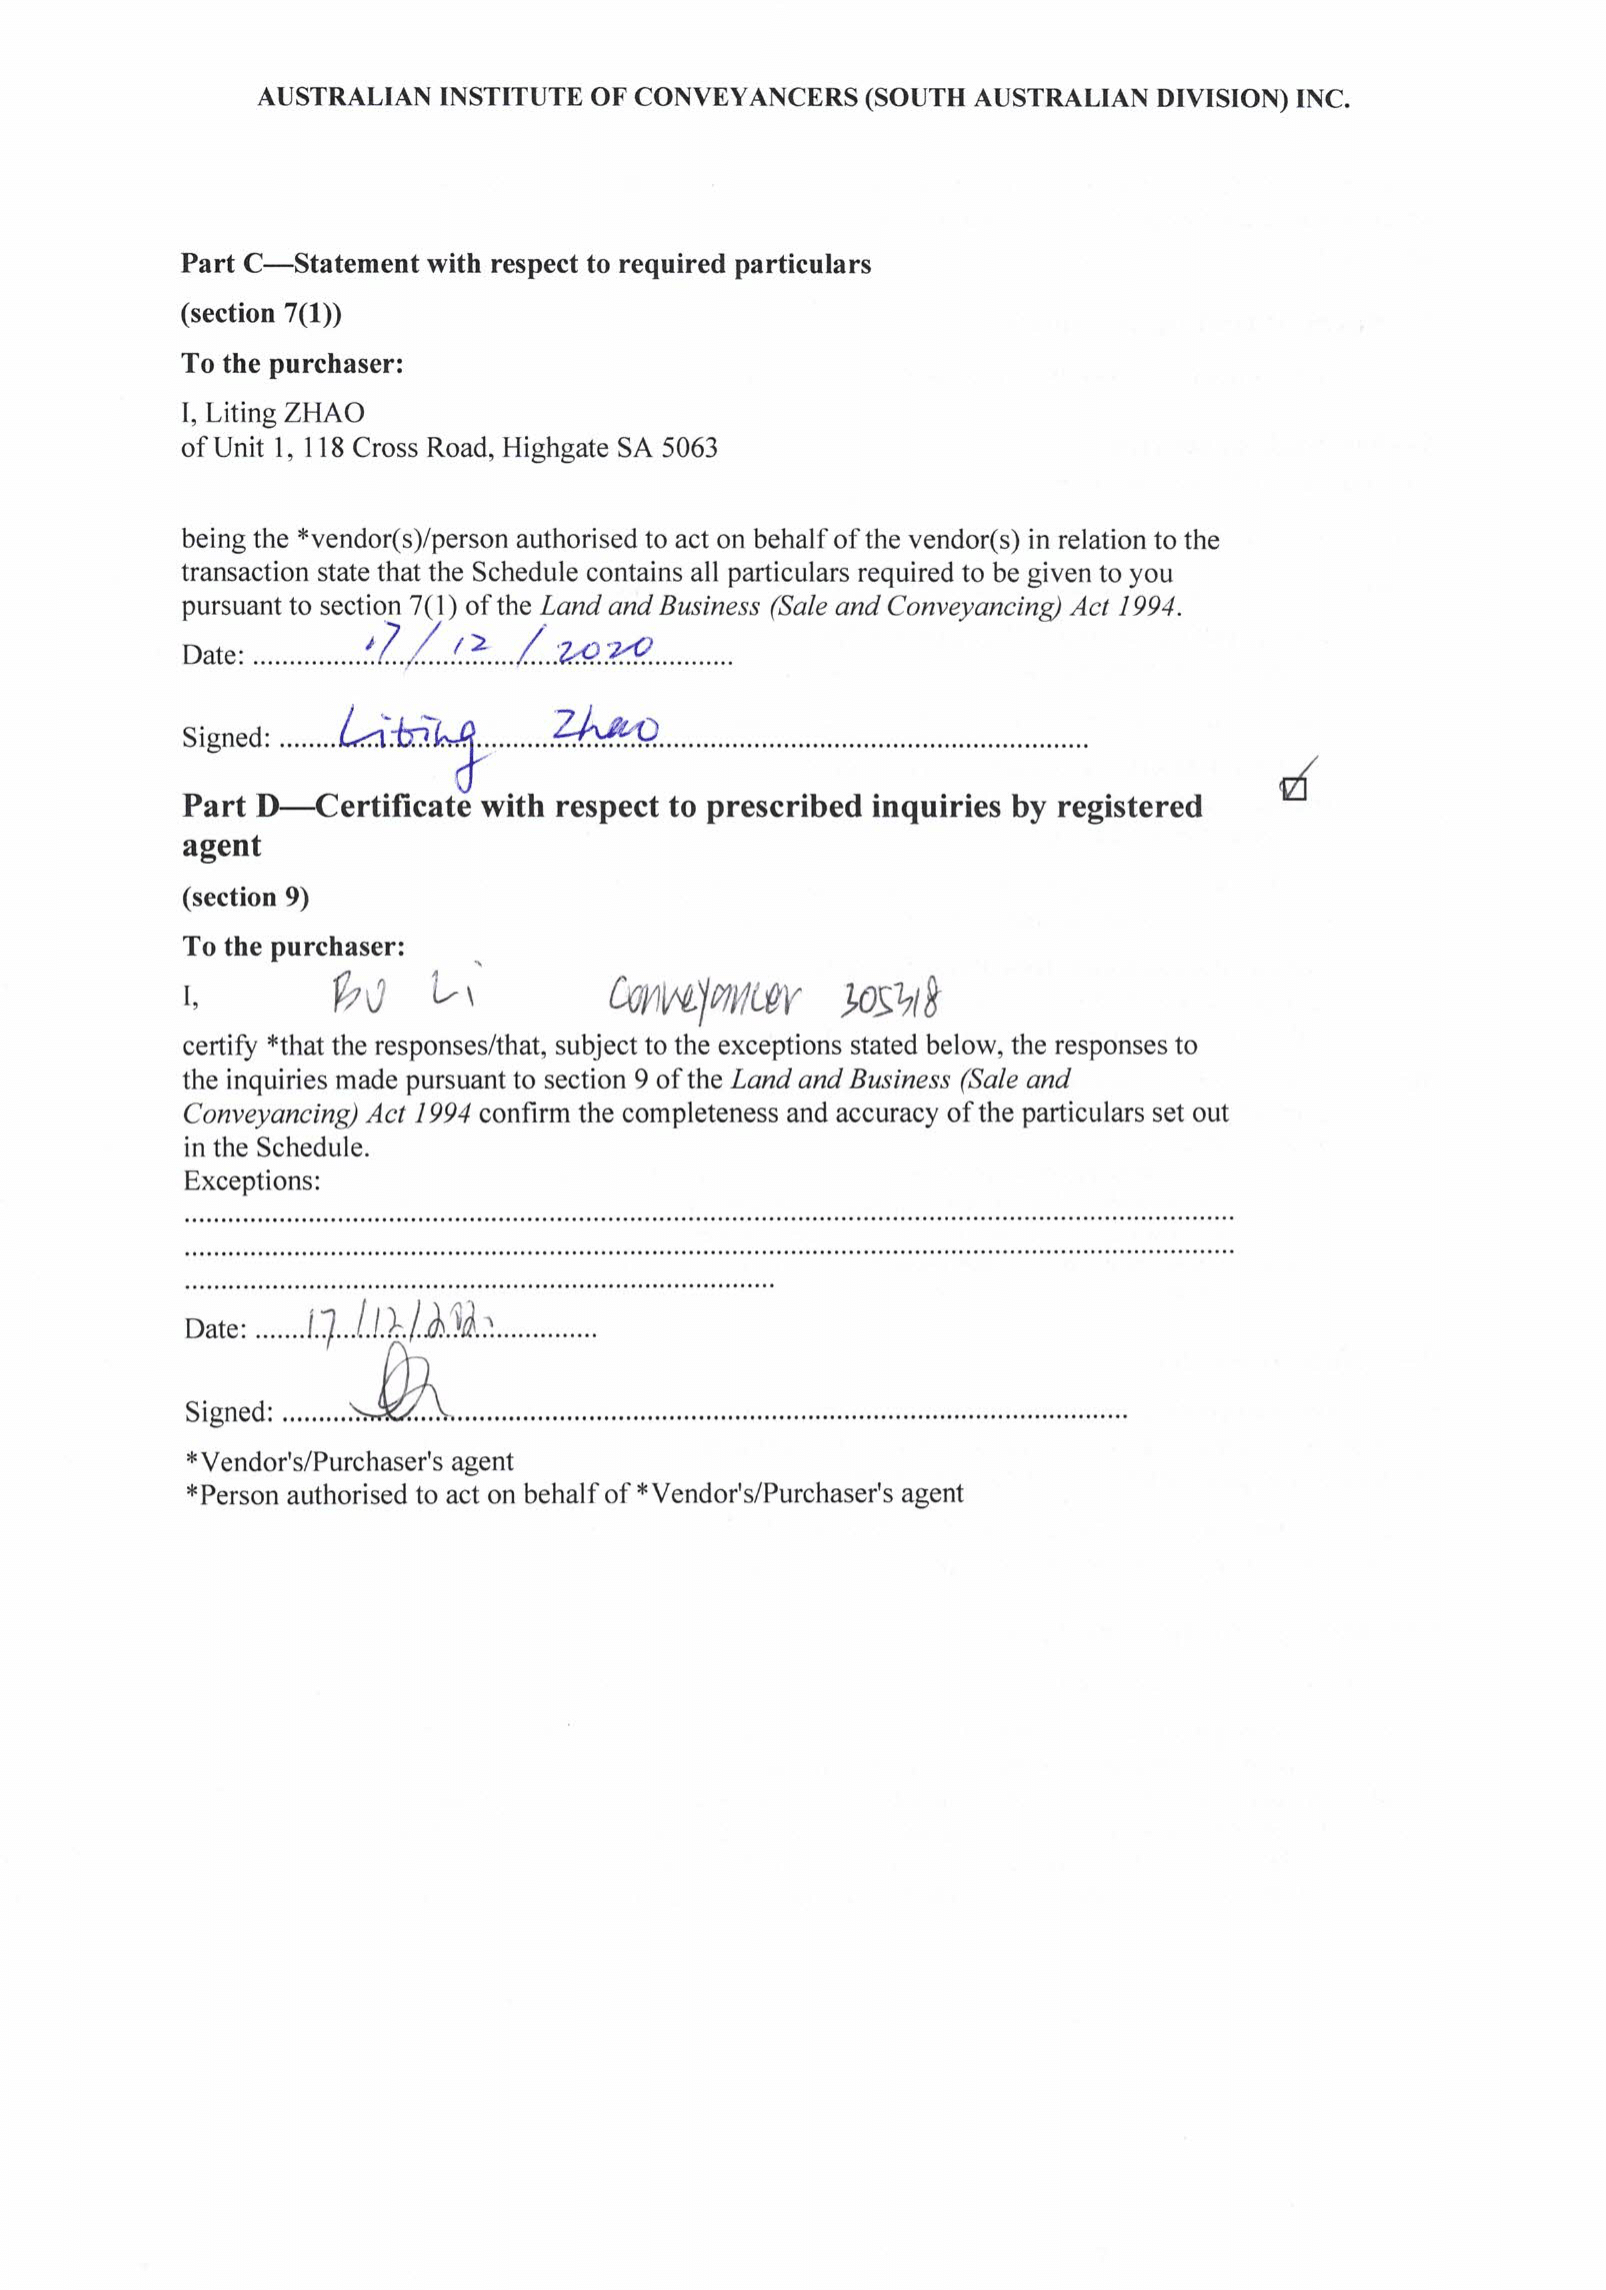 AUSTRALIAN INSTITUTE OF CONVEYANCERS (SOUTH AUSTRALIAN DIVISION) INC.
Part C—Statement with respect to required particulars
(section 7(1))
To the purchaser:
I, Liting ZHAO
of Unit 1, 118 Cross Road, Highgate SA 5063
being the *vendor(s)/person authorised to act on behalf of the vendor(s) in relation to the
transaction state that the Schedule contains all particulars required to be given to you
pursuant to section 7(1) of the Land and Business (Sale and Conveyancing) Act 1994.
Date: 17/12/2020
Signed: Liting Zhao
Part D—Certificate with respect to prescribed inquiries by registered
agent
(section 9)
To the purchaser:
I, Bu Li Conveyancer 305318
certify *that the responses/that, subject to the exceptions stated below, the responses to
the inquiries made pursuant to section 9 of the Land and Business (Sale and
Conveyancing) Act 1994 confirm the completeness and accuracy of the particulars set out
in the Schedule.
Exceptions:
Date: 17/12/2020
Signed:
*Vendor's/Purchaser's agent
*Person authorised to act on behalf of *Vendor's/Purchaser's agent